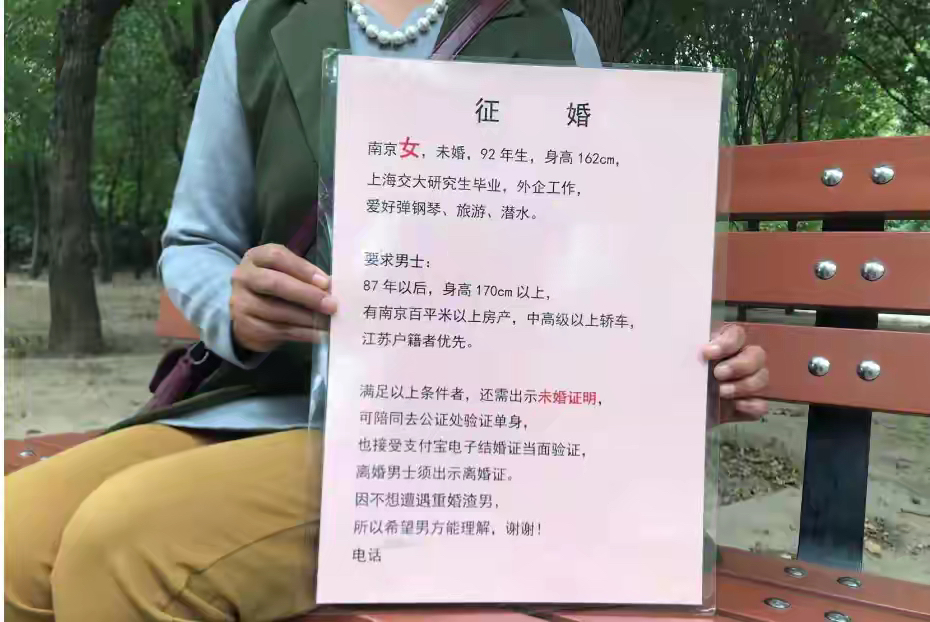 征 婚
南京女，未婚，92年生，身高162cm，
上海交大研究生毕业，外企工作，
爱好弹钢琴、旅游、潜水。
要求男士：
87年以后，身高170cm以上，
有南京百平米以上房产，中高级以上轿车，
江苏户籍者优先。
满足以上条件者，还需出示未婚证明，
可陪同去公证处验证单身，
也接受支付宝电子结婚证当面验证，
离婚男士须出示离婚证。
因不想遭遇重婚渣男，
所以希望男方能理解，谢谢！
电话